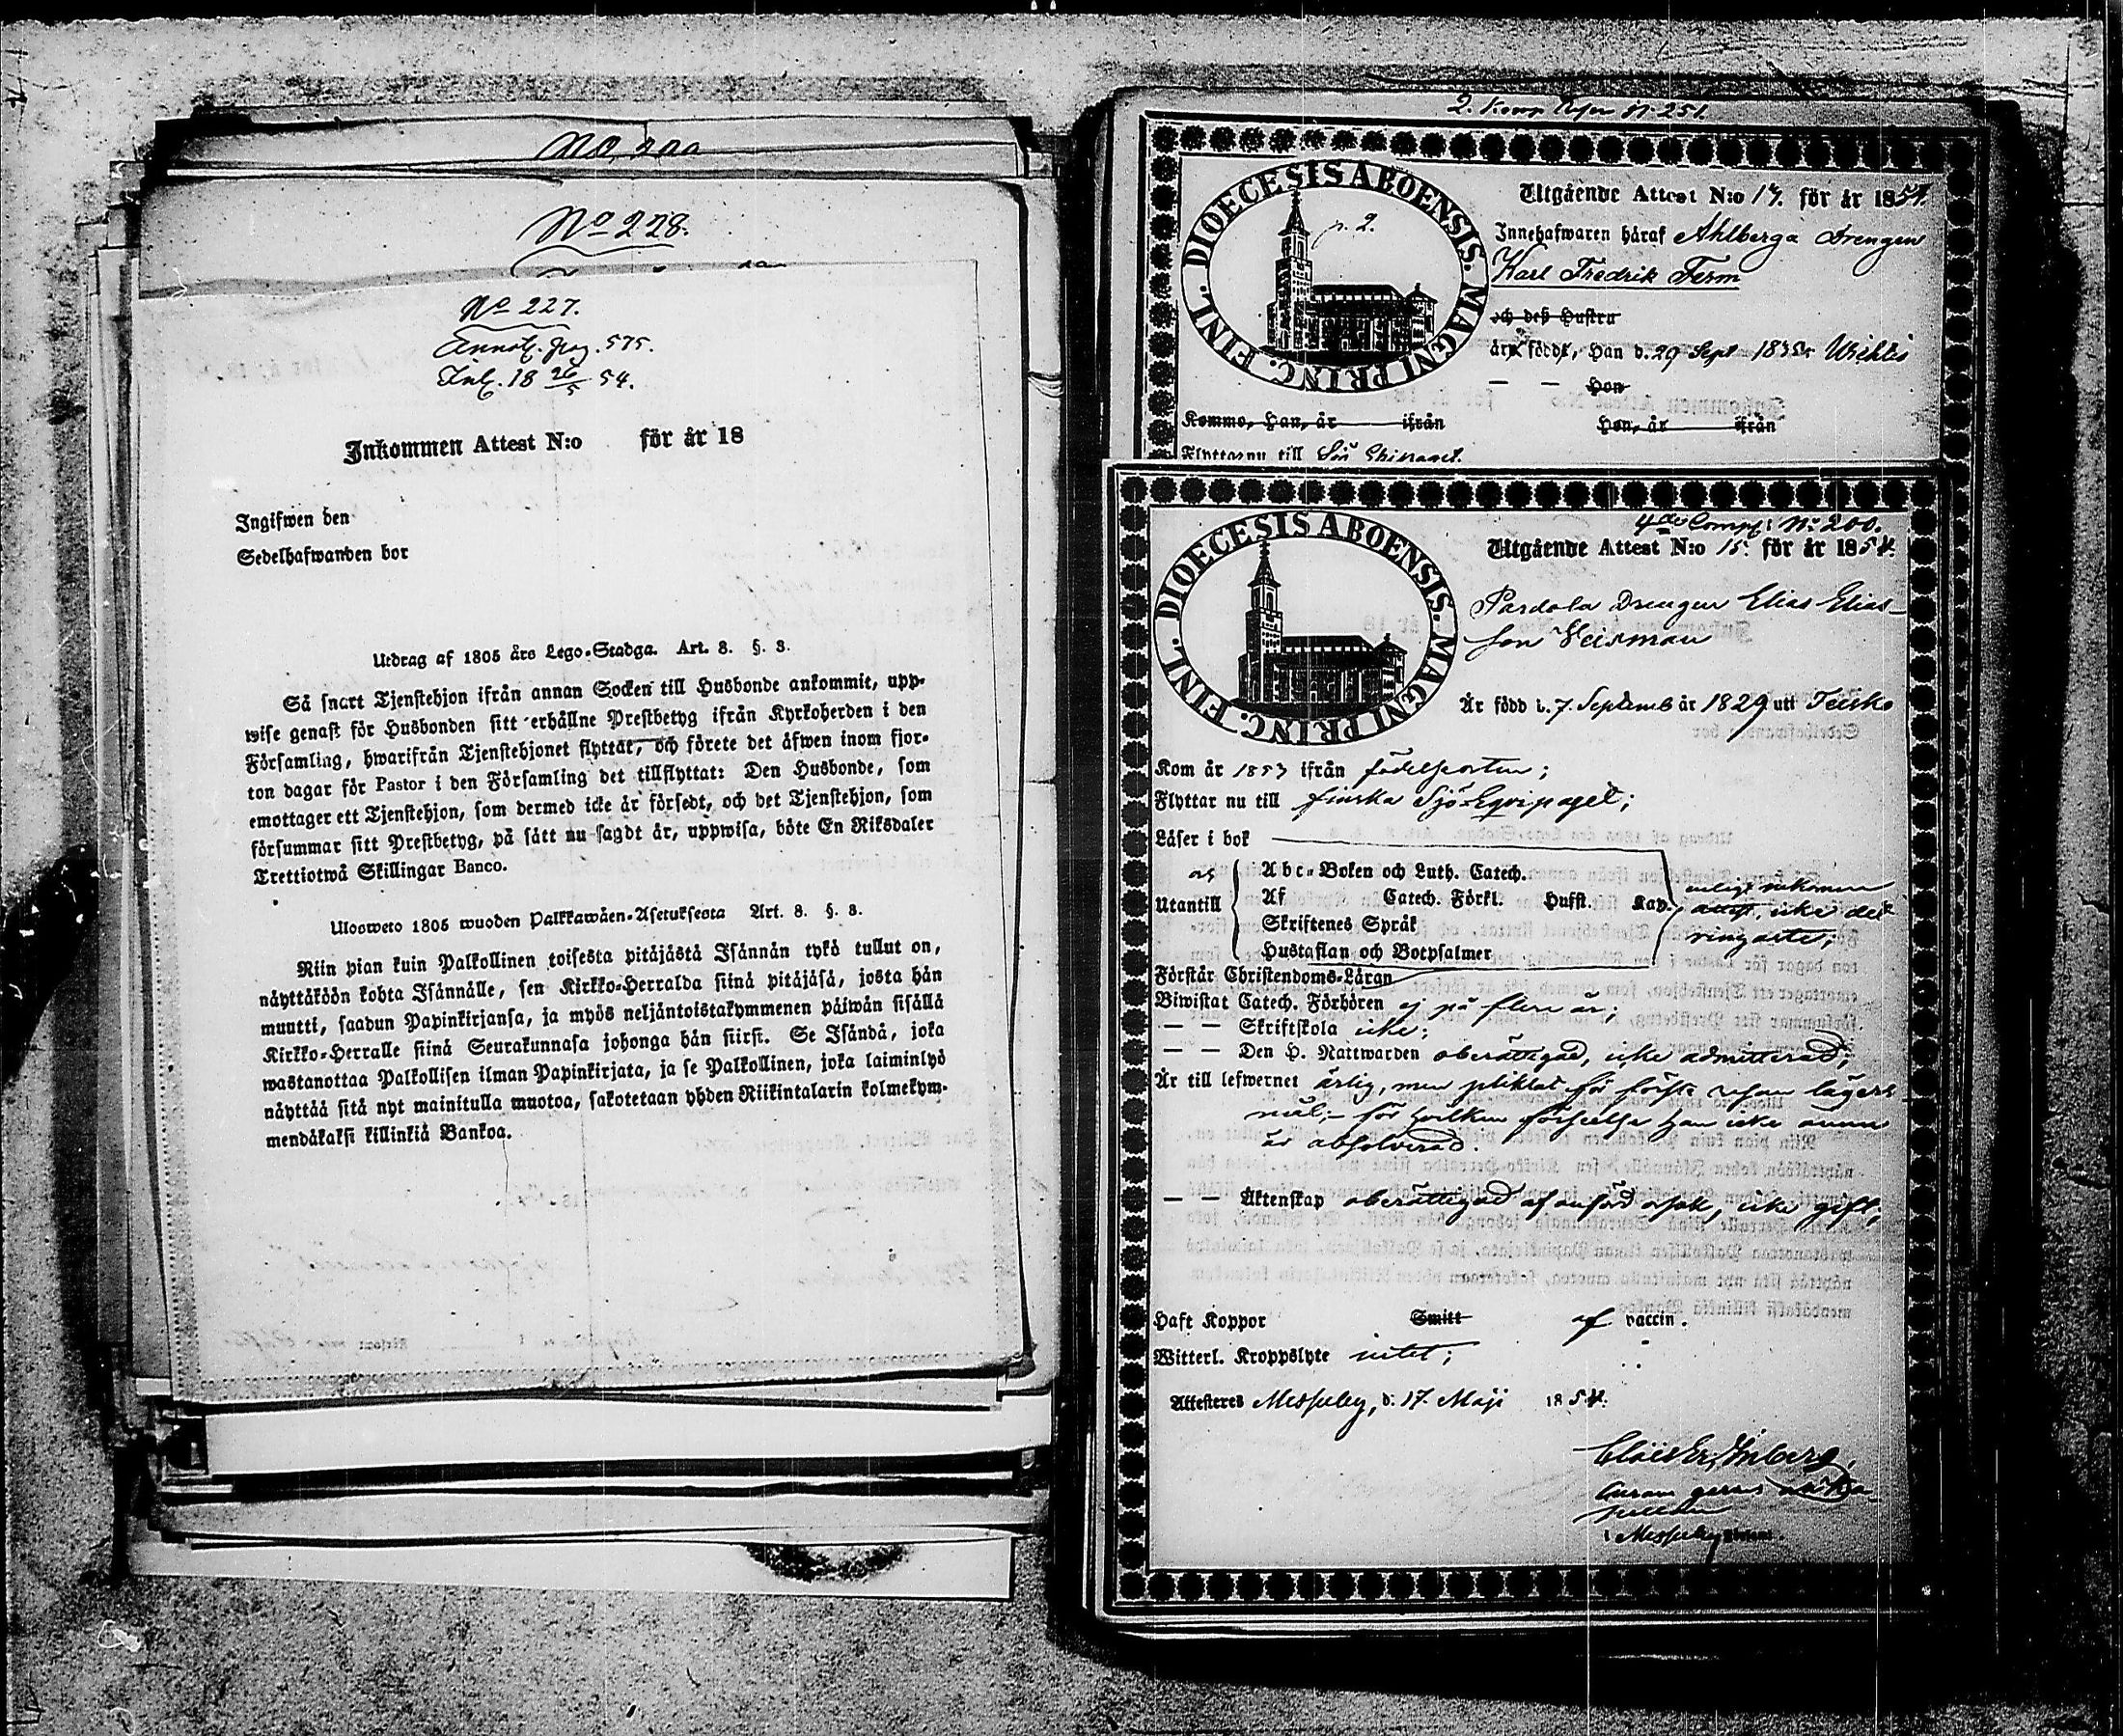 No 228.
No 227.
Annot. pag. 575.
Inl. 18 26/5 54.
Inkommen Attest N:o för år 18
Ingifwen den
Sedelhafwanden bor
Utdrag af 1805 års Lego-Stadga. Art. 8. §. 3.
Så snart Tjenstehjon ifrån annan Socken till Husbonde ankommit, upp-
wise genast för Husbonden sitt erhållne Prestbetyg ifrån Kyrkoherden i den
Församling, hwarifrån Tjenstehjonet flyttat, och förete det äfwen inom fjor-
ton dagar för Pastor i den Församling det tillflyttat: Den Husbonde, som
emottager ett Tjenstehjon, som dermed icke är försedt, och det Tjenstehjon, som
försummar sitt Prestbetyg, på sätt nu sagdt är, uppwisa, böte En Riksdaler
Trettiotwå Skillingar Banco.
Ulosweto 1805 wuoden Palkkawäen-Asetuksesta Art. 8. §. 3.
Niin pian kuin Palkollinen toisesta pitäjästä Isännän tykö tullut on,
näyttäköön kohta Isännälle, sen Kirkko-Herralda siinä pitäjäsä, josta hän
muutti, saadun Papinkirjansa, ja myös neljäntoistakymmenen päiwän sisällä
Kirkko-Herralle siinä Seurakunnasa johonga hän siirst. Se Isändä, joka
wastanottaa Palkollisen ilman Papinkirjata, ja se Palkollinen, joka laiminlyö
näyttää sitä nyt mainitulla muotoa, sakotetaan yhden Riikintalarin kolmekym-
mendäkaksi killinkiä Bankoa.
2. Komp N:251.
DIOECESIS ABOENSIS. MAGNI PRINC. FINL.
p. 2.
Utgående Attest N:o 17. för år 1854.
Innehafwaren häraf Ahlberga Drengen
Karl Fredrik Ferm
och deß Hustru
är född, Han d. 29 Sept 1835 Wichtis
— — Hon
Kommo, Han, år ifrån Hon, år ifrån
Flyttar nu till Sjö Ekipaget.
4de Comp: No 200.
DIOECESIS ABOENSIS. MAGNI PRINC. FINL.
Utgående Attest N:o 15. för år 1854.
Pardola Drengen Elias Elias-
son Veisman
Är född d. 7. Septemb år 1829 uti Teisko
Kom år 1853 ifrån födelseorten;
Flyttar nu till finska Sjö Eqvipaget;
Läser i bok
Utantill
Abc-Boken och Luth. Catech.
Af Catech. Förkl. Hufst. Kap.
Skriftenes Språk
Hustaflan och Botpsalmer
enligt inkomne
attest, icke det
ringaste;
Förstår Christendoms-Läran
Biwistat Catech. Förhören ej på flere år;
— — Skriftskola icke;
— — Den H. Nattwarden oberättigad, icke admitterad;
Är till lefwernet ärlig, men pliktat för första resan lägers-
mål; för hvilken förseelse han icke ännu
är absolverad.
— — Äktenskap oberättigad af anförd orsak, icke gift;
Haft Koppor Smitt af vaccin.
Witterl. Kroppslyte intet;
Attesteras Messuby, d. 17. Maji 1854.
i Messuby